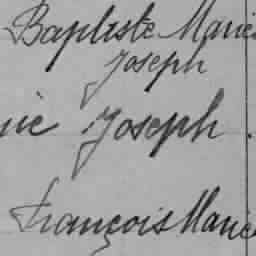 Baptiste Marie
Joseph
rie Joseph.
François Marie